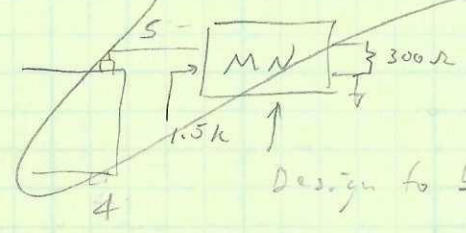 5
MN
300Ω
1.5k
Design to
4